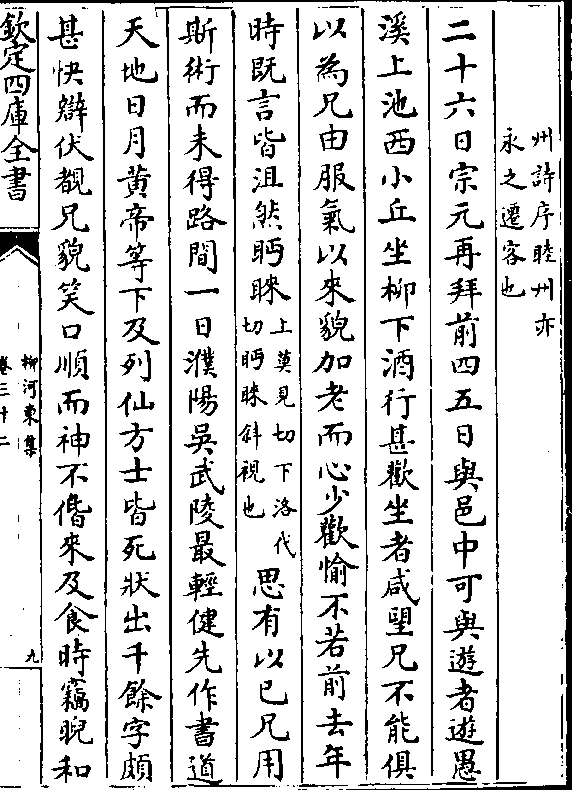 州詩序睦州亦
永之遷客也
二十六日宗元再拜前四五日與邑中可與遊者遊愚
溪上池西小丘坐柳下酒行甚歡坐者咸望兄不能俱
以為兄由服氣以來貌加老而心少歡愉不若前去年
時既言皆沮然眄睞
上莫見切下洛代
切眄睞斜視也
思有以已兄用
斯術而未得路間一日濮陽吳武陵最輕健先作書道
天地日月黄帝等下及列仙方士皆死狀出千餘字頗
甚快辯伏覩兄貌笑口順而神不偕來及食時竊睨和
欽定四庫全書
柳河東集
卷三十二
九